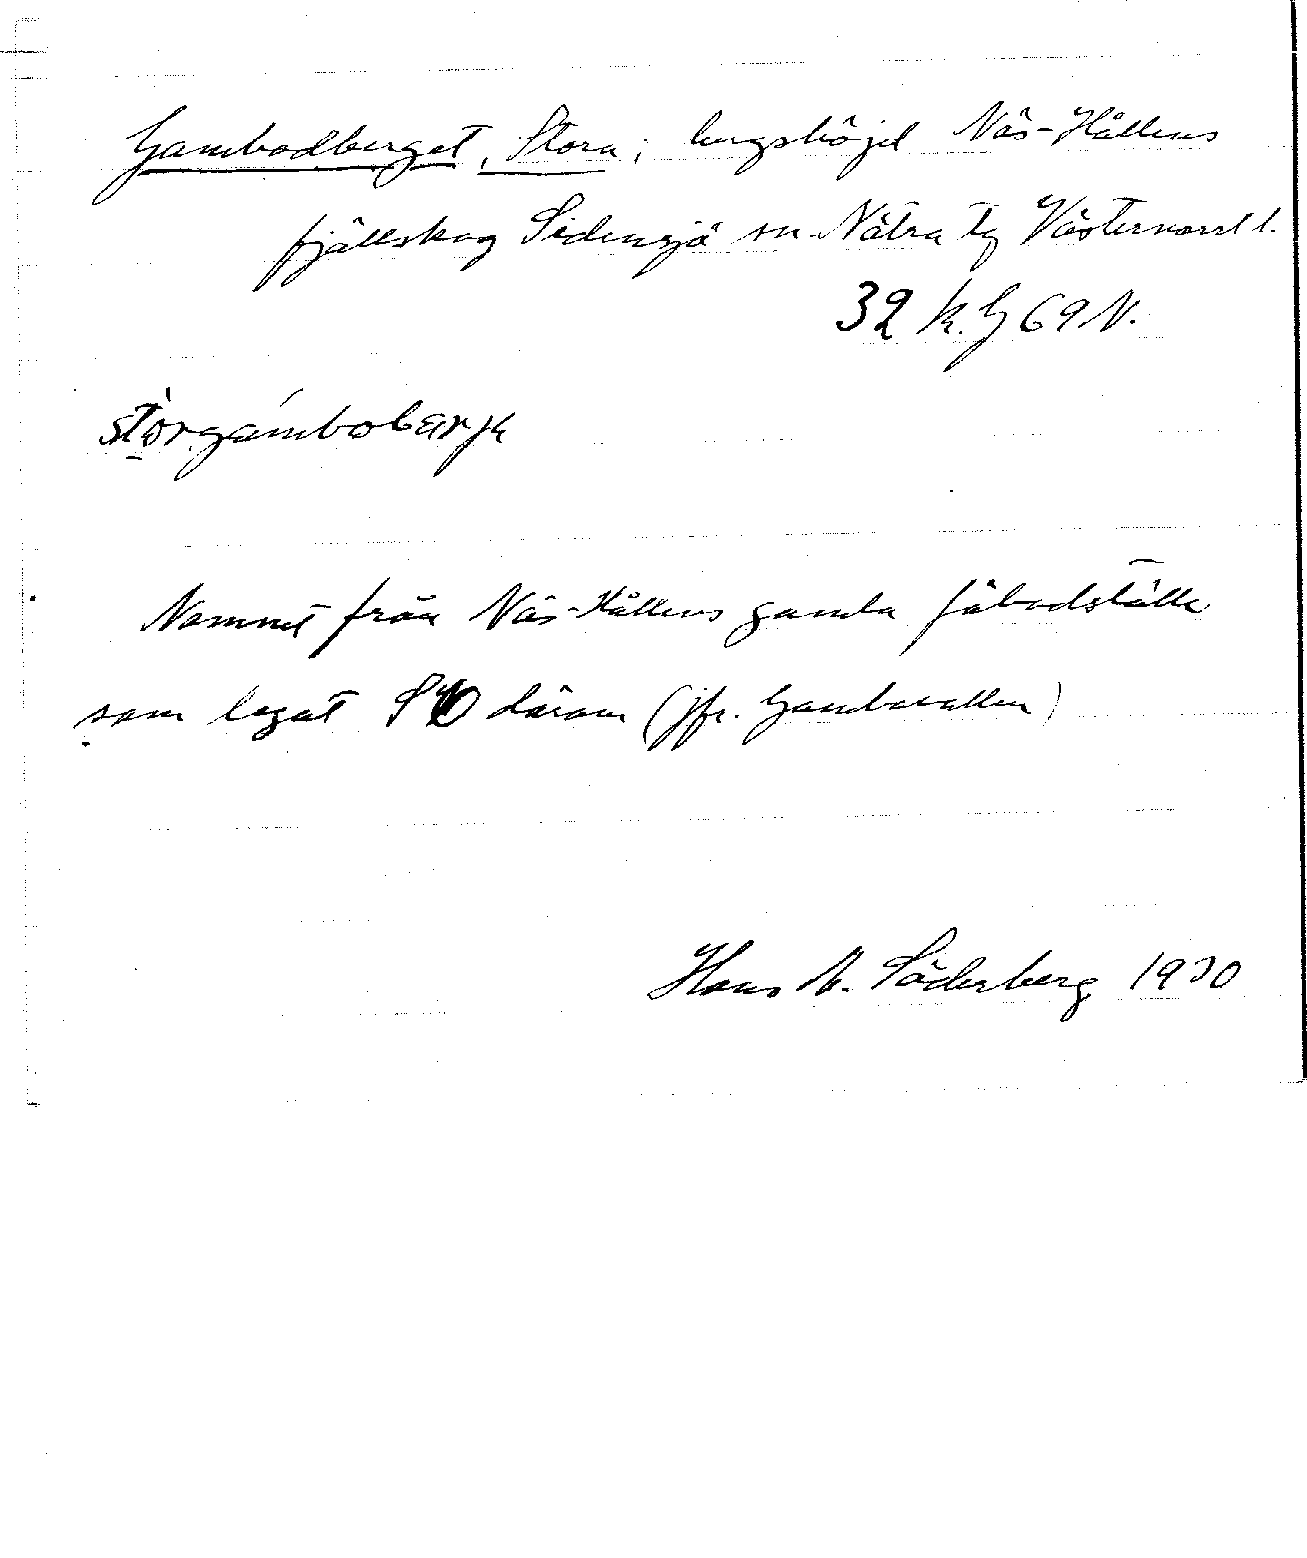 Gambodberget, Stora; bergshöjd Näs-Hållens
fjällskog Sidensjö sn. Nätra tg Västernorrl l.
32 k. G 69 N.
stòrgámbobærje
Namnet från Näs-Hållens gamla fäbodställe
som legat SO därom (jfr. Gambovallen)
Hans N. Söderberg 1930